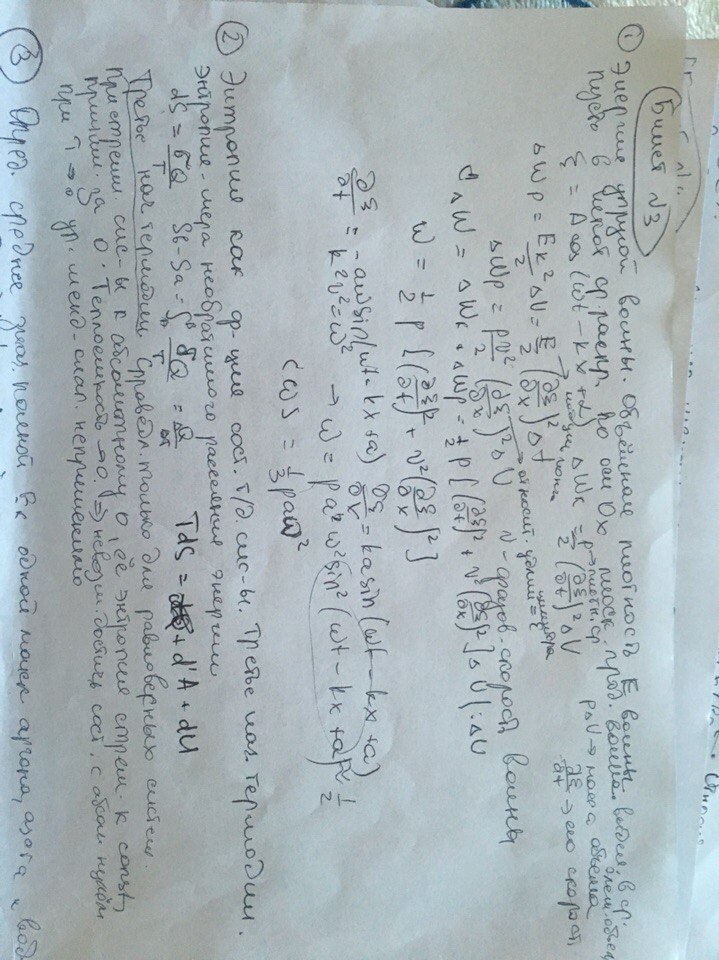 Билет №3
① Энергия упругой волны. Объёмная плотность E волны.
Пусть в некот. ср. распр. по оси Ox плоск. прод. волна. Выдел. в ср.
ξ = A cos (ωt - kx + α) ΔWк = ρ/2 (∂ξ/∂t)² ΔV
ρ → плотн. ср ρΔV → масса объёма
∂ξ/∂t → его скорость
ΔWp = Ek²/2 ΔV = E/2 (∂ξ/∂x)² Δ
→ модуль Юнга
→ относит. удлин =
ΔWp = ρv²/2 (∂ξ/∂x)² ΔV v - фазов. скорость волны
ΔW = ΔWк + ΔWp = 1/2 ρ [(∂ξ/∂t)² + v² (∂ξ/∂x)²] ΔV |:ΔV
W = 1/2 ρ [(∂ξ/∂t)² + v² (∂ξ/∂x)²]
∂ξ/∂t = -aω sin(ωt - kx + α) = ka sin(ωt - kx + α)
k²v² = ω² → ω = ρa²ω² sin² (ωt - kx + α) 1/2
② Энтропия как ф-ция сост. т/д. сис-ы. Третье нач. термодин.
Энтропия - мера необратимого рассеяния энергии
dS = δQ/T Sb - Sa = TdS = + d'A + dU
Третье нач термодин Справедл. только для равновесных систем.
При стремл. сис-ы к абсолютному 0, её энтропия стрем. к const,
приним. за 0. Теплоёмкость →0. ⇒ невозм. достичь сост. с абсол нулём
при T → 0 ур. менд-клап. неприменимо
③ Опред. среднее знач. полной Eк одной молек аргона, азота и